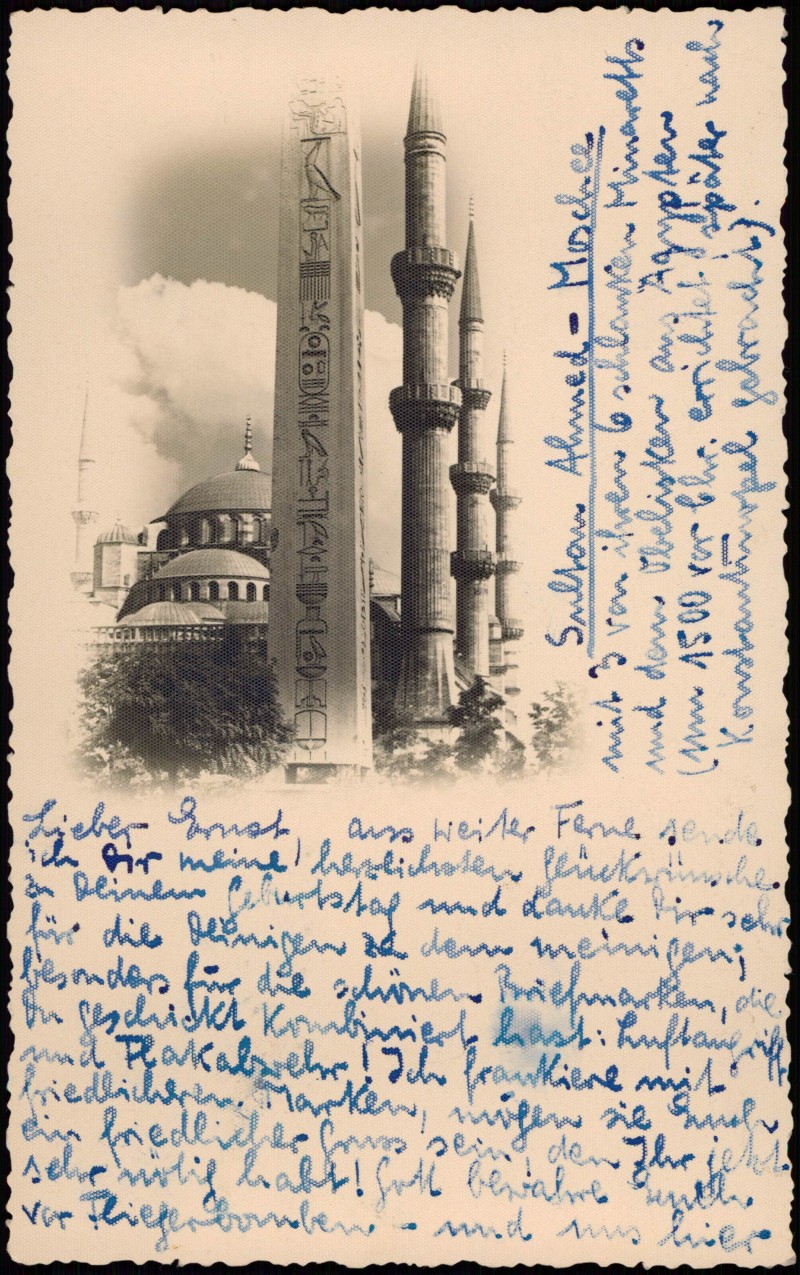 Sultan Ahmed - Moschee
mit 3 von ihren 6 schlanken Minaretts
und dem Obelisken aus Ägypten
(um 1500 vor Chr. errichtet, später nach
Konstantinopel gebracht).
Lieber Ernst, aus weiter Ferne sende
ich Dir meine herzlichsten Glückwünsche
zu Deinem Geburtstag und danke Dir sehr
für die Deinigen zu dem meinigen;
besonders für die schönen Briefmarken, die
Du geschickt kombiniert hast: Luftangriff
und Flakabwehr! Ich frankiere mit
friedlicheren Marken, mögen sie Euch
ein friedlicher Gruss sein, den Ihr jetzt
sehr nötig habt! Gott bewahre Euch
vor Fliegerbomben - und uns hier